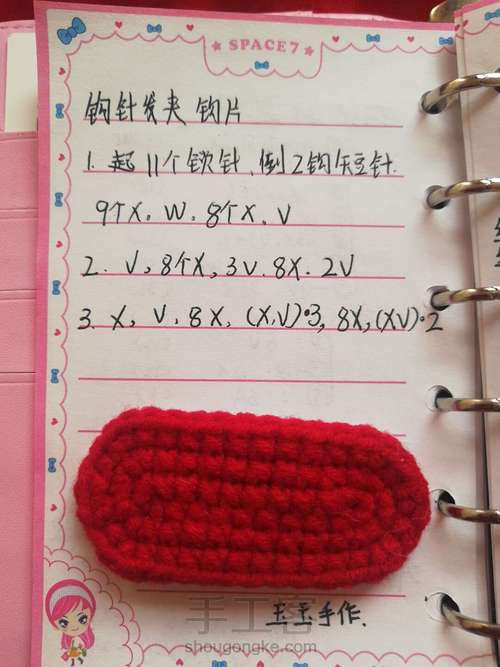 SPACE7
钩针发夹 钩片
1. 起11个锁针、倒2钩短针.
9个X. W. 8个X. V
2. V, 8个X, 3V. 8X. 2V
3. X, V, 8X, (X,V)·3, 8X, (XV)·2
玉玉手作.
手工客
shougongke.com